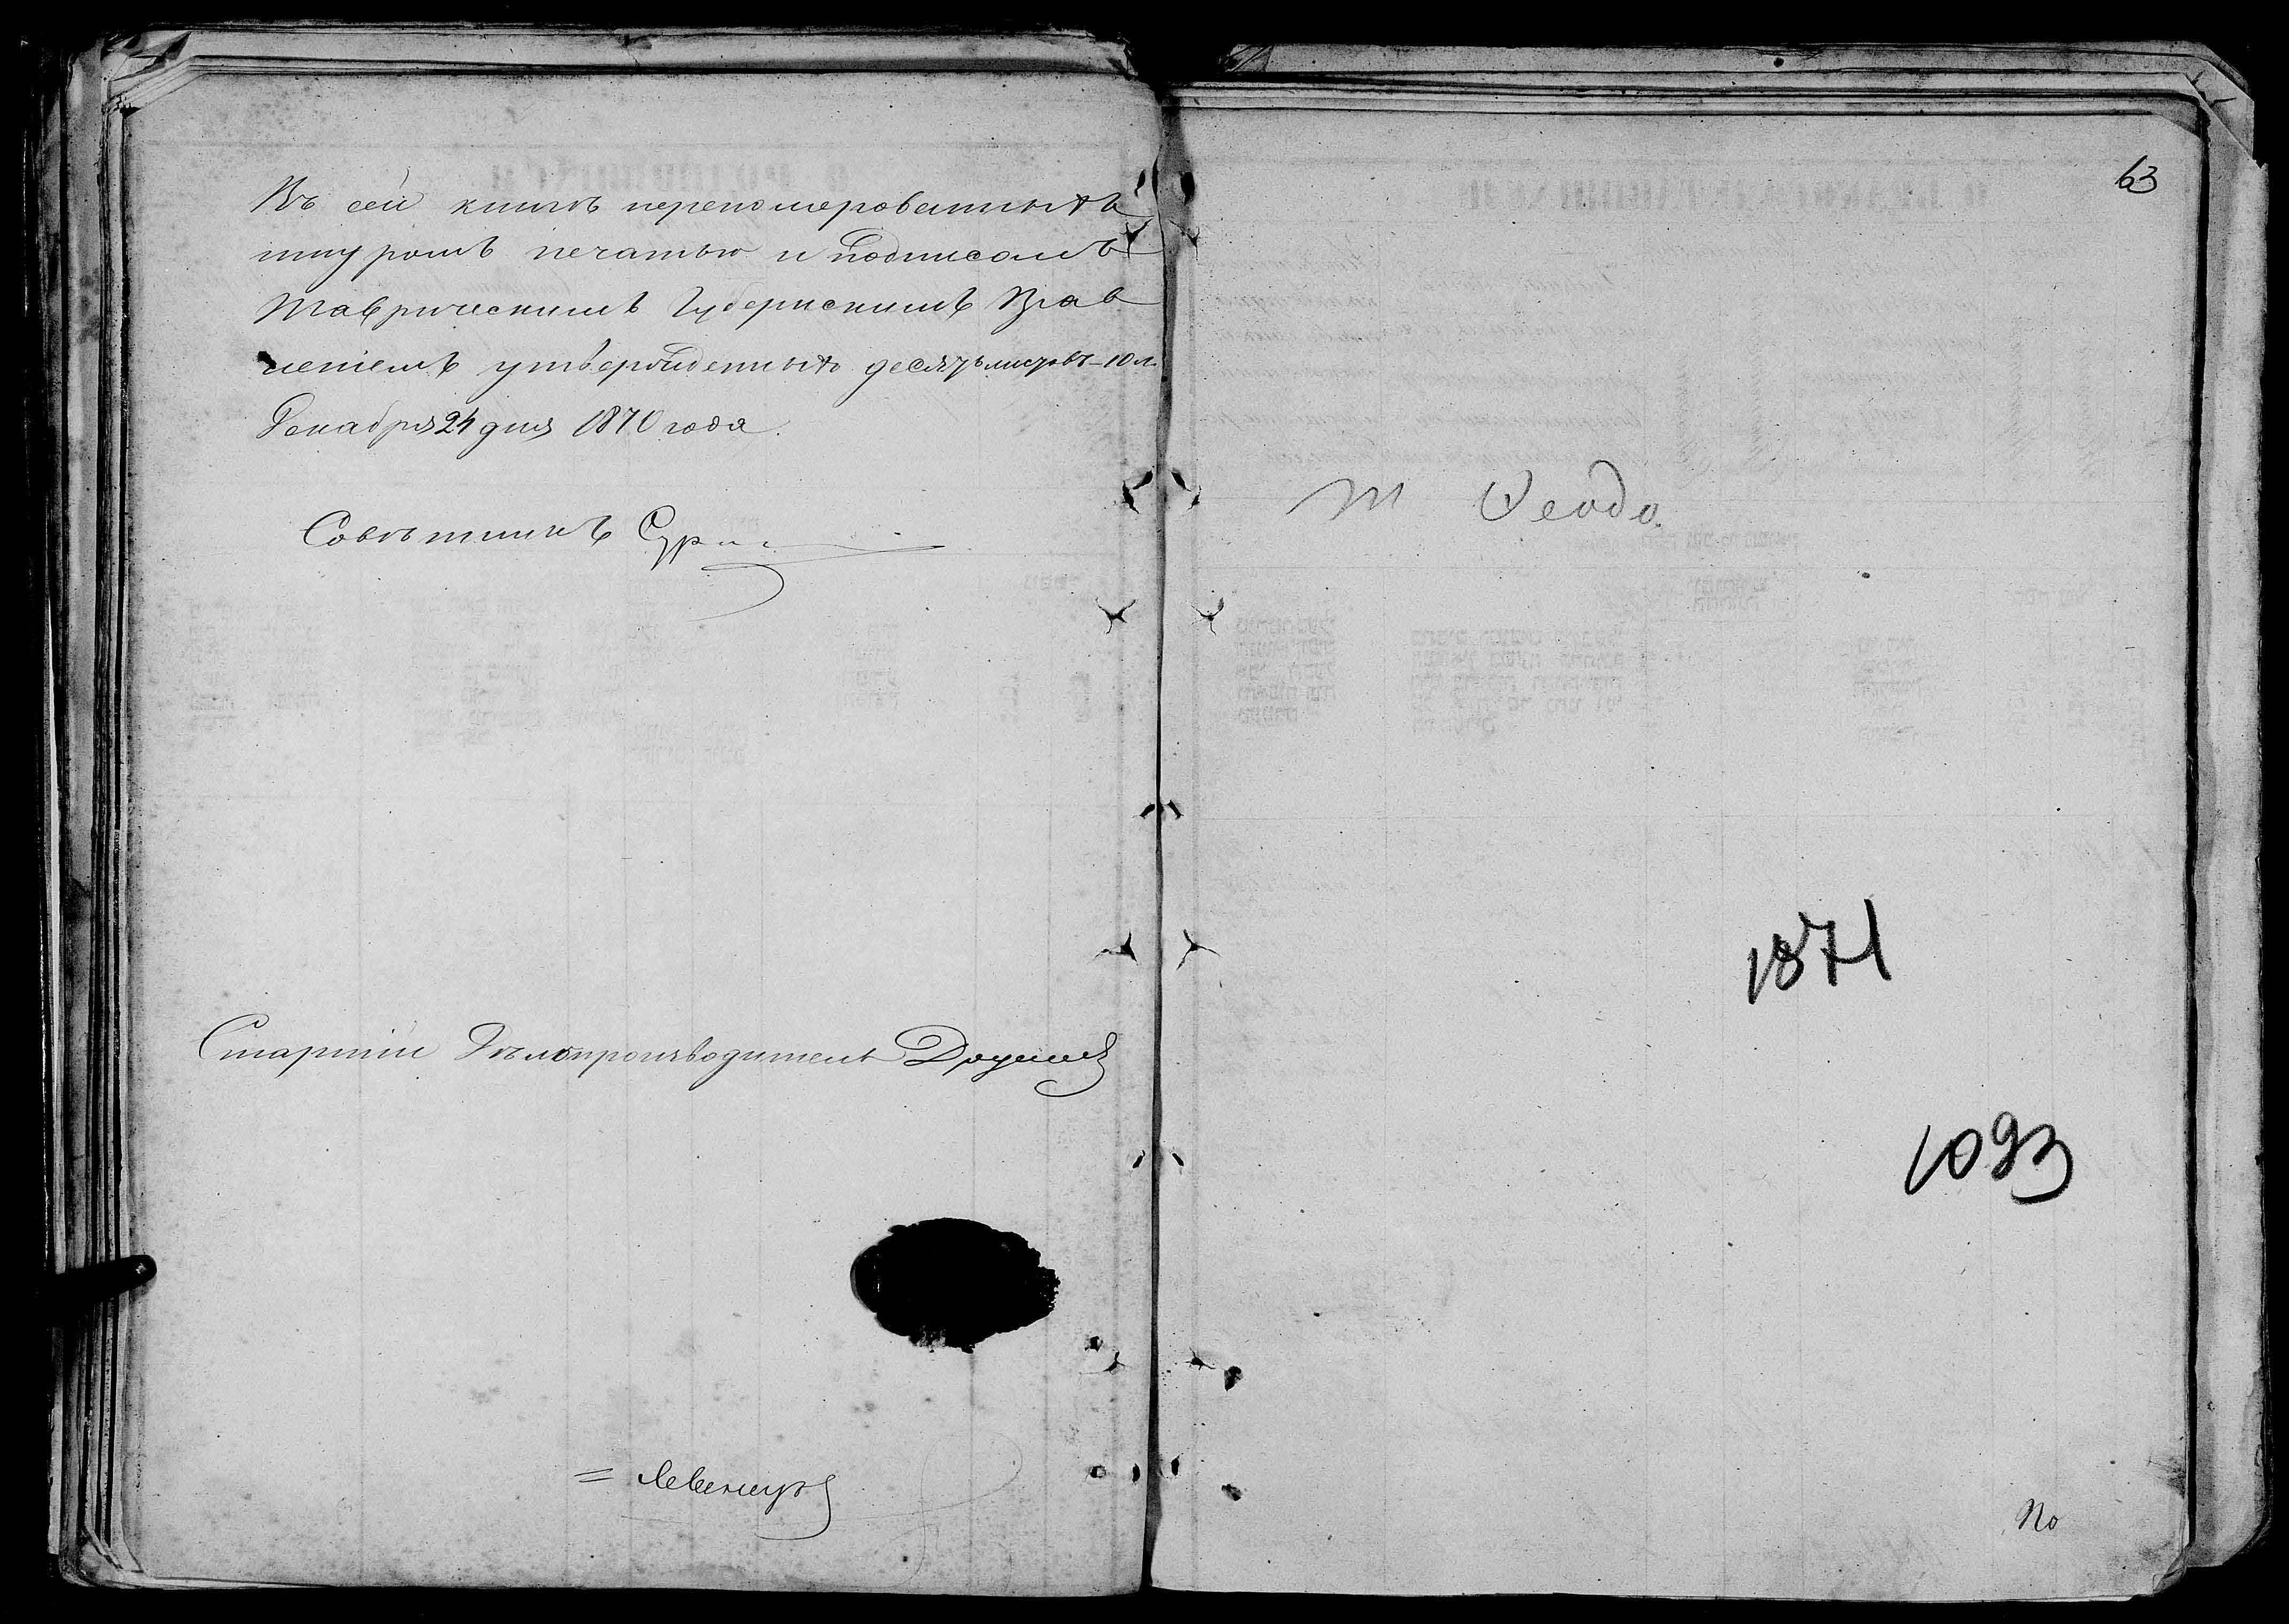 Въ сей книгѣ перенумерованныхъ
шнуромъ печатью и подписомъ
Таврическимъ Губернскимъ Прав
леніемъ утвержденныхъ десять листовъ - 10 л.
Декабря 24 дня 1870 года.
Совѣтникъ
Старшій Дѣлопроизводитель
63
М Ѳеодо.
1871
1093
По